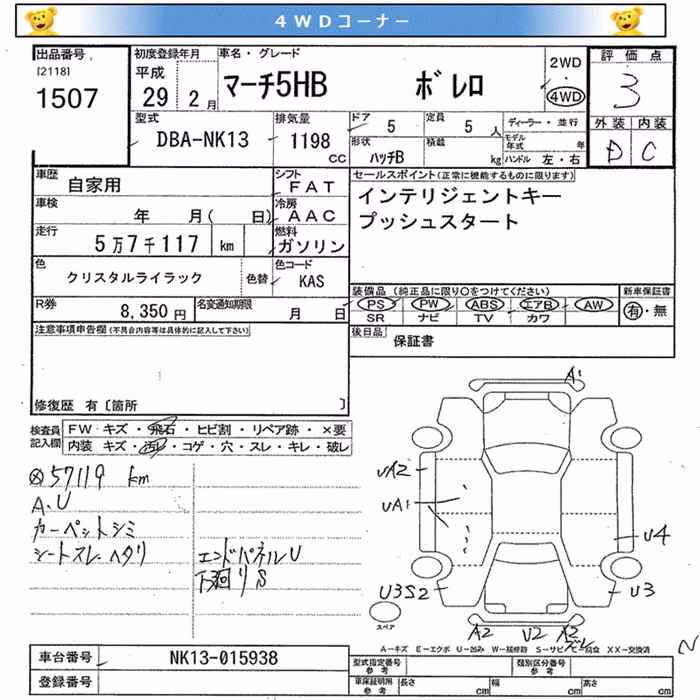 4WDコーナー
出品番号
[2118]
1507
初度登録年月
平成
29 2 月
車名・グレード
マーチ5HB ボレロ
2WD
・
4WD
評価点
3
外装 内装
D C
型式
DBA-NK13
排気量
1198
CC
ドア 5
定員 5 人
形状
ハッチB
積載
kg
ディーラー・並行
モデル年式 年
ハンドル 左・右
車歴
自家用
シフト
FAT
車検
年 月( 日)
冷房
AAC
走行
5万7千117 km
燃料
ガソリン
色
クリスタルライラック
色替
色コード
KAS
R券
8,350円
名変通知期限
月 日
セールスポイント(正常に機能するものに限ります)
インテリジェントキー
プッシュスタート
装備品 (純正品に限り○をつけてください)
PS PW ABS エアB AW
SR ナビ TV カワ
新車保証書
有・無
後日品
保証書
注意事項申告欄(不具合内容等は具体的に記入して下さい)
修復歴 有〔箇所 〕
検査員
記入欄
FW キズ・飛石・ヒビ割・リペア跡・×要
内装 キズ・汚レ・コゲ・穴・スレ・キレ・破レ
57119 km
A.U
カーペットシミ
シートスレ.ヘタリ
エンドパネルU
下廻りS
A1
UA2
UA1
U4
U3S2
U3
スペア
A2 U2 A2
A-キズ E-エクボ U-凹み W-補修跡 S-サビ C-腐食 XX-交換済
車台番号
NK13-015938
登録番号
型式指定番号
参考
類別区分番号
参考
車庫証明用
参考
長さ cm
幅 cm
高さ cm